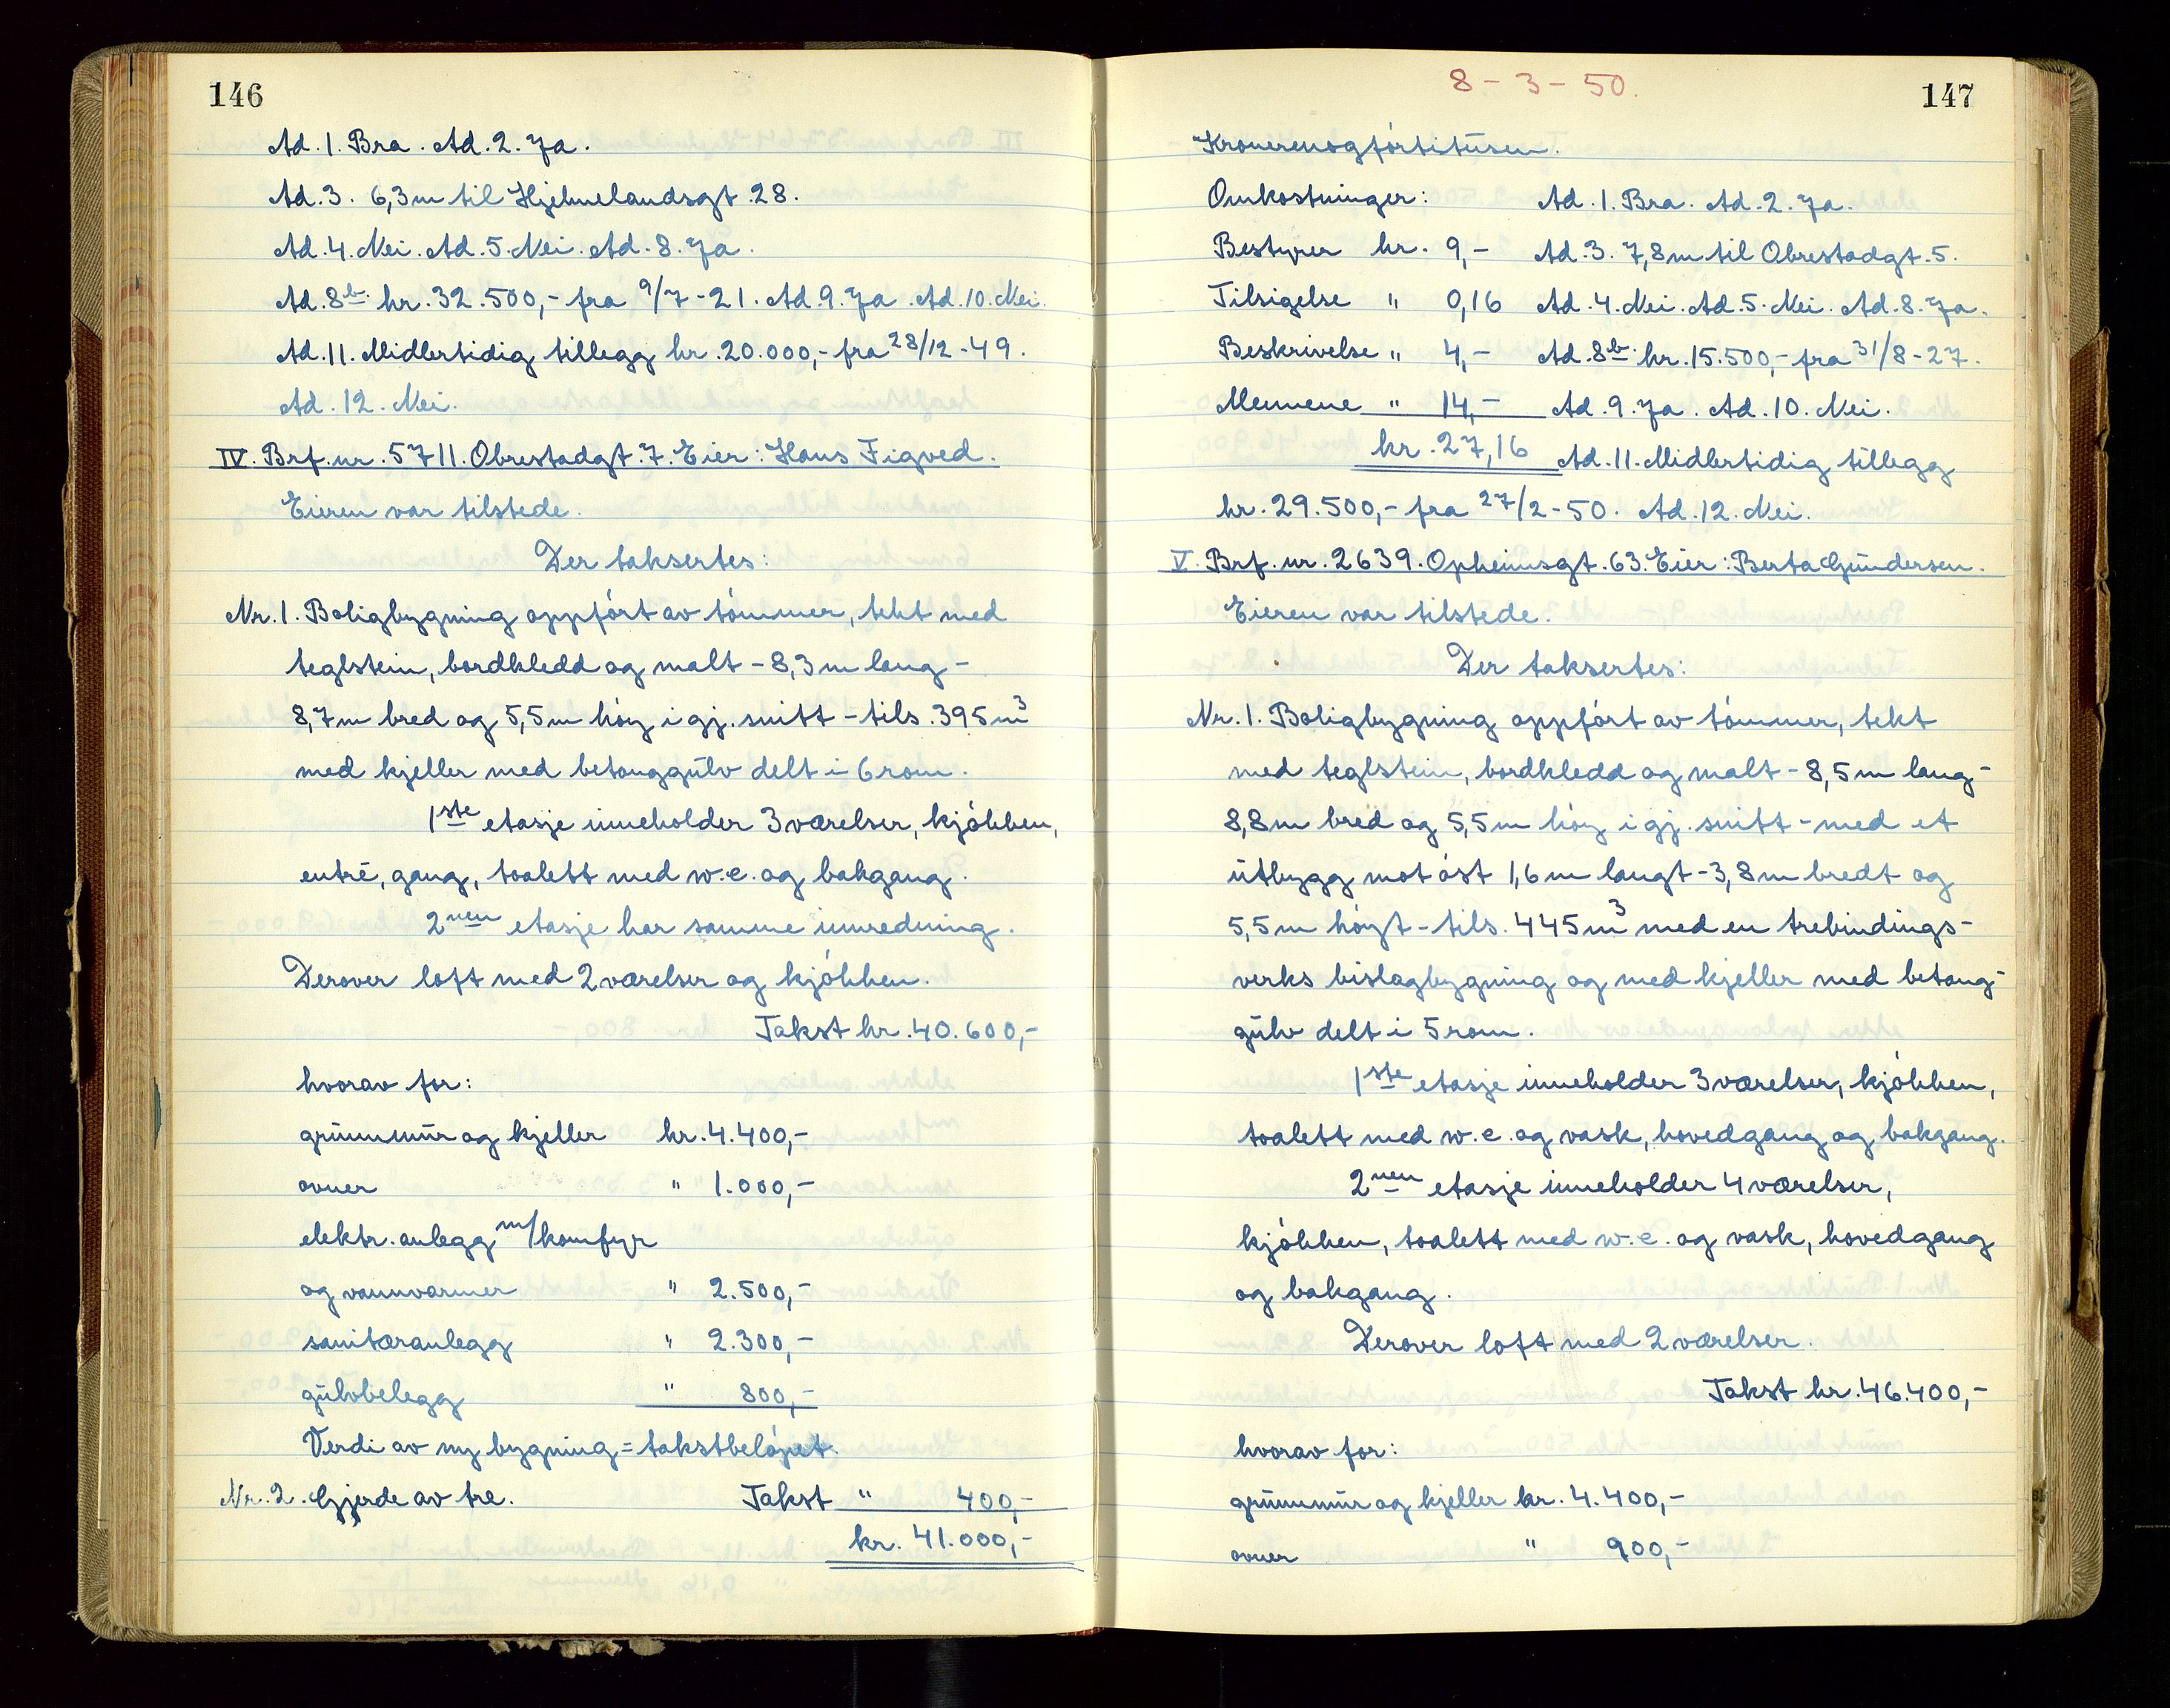 146
Ad. 1. Bra. Ad. 2. Ja.
Ad. 3. 6,3 m til Hjelmelandsgt. 28.
Ad. 4. Nei. Ad. 5. Nei. Ad. 8. Ja.
Ad. 8b. kr. 32.500,- fra 9/7-21. Ad. 9. Ja. Ad. 10. Nei.
Ad. 11. Midlertidig tillegg kr. 20.000,- fra 28/12-49.
Ad. 12. Nei.
IV. Brf. nr. 5711. Obrestadgt. 7. Eier: Hans Figved.
Eieren var tilstede.
Der taksertes:
Nr. 1. Boligbygning oppført av tømmer, tekt med
teglstein, bordkledd og malt - 8,3 m lang -
8,7 m bred og 5,5 m høy i gj. snitt - tils. 395 m³
med kjeller med betonggulv delt i 6 rom.
1ste etasje inneholder 3 værelser, kjøkken,
entré, gang, toalett med w.c. og bakgang.
2nen etasje har samme innredning.
Derover loft med 2 værelser og kjøkken.
Takst kr. 40.600,-
hvorav for:
grunnmur og kjeller kr. 4.400,-
ovner " 1.000,-
elektr. anlegg m/komfyr
og vannvarmer " 2.500,-
sanitæranlegg " 2.300,-
gulvbelegg " 800,-
Verdi av ny bygning = takstbeløpet.
Nr. 2. Gjerde av tre. Takst " 400,-
kr. 41.000,-
8-3-50.
147
Kronerenogførtitusen.
Omkostninger: Ad. 1. Bra. Ad. 2. Ja.
Bestyrer kr. 9,- Ad. 3. 7,8 m til Obrestadgt. 5.
Tilsigelse " 0,16 Ad. 4. Nei. Ad. 5. Nei. Ad. 8. Ja.
Beskrivelse " 4,- Ad. 8b. kr. 15.500,- fra 31/8-27.
Mennene " 14,- Ad. 9. Ja. Ad. 10. Nei.
kr. 27,16 Ad. 11. Midlertidig tillegg
kr. 29.500,- fra 27/2-50. Ad. 12. Nei.
V. Brf. nr. 2639. Opheimsgt. 63. Eier: Berta Gundersen.
Eieren var tilstede.
Der taksertes:
Nr. 1. Boligbygning oppført av tømmer, tekt
med teglstein, bordkledd og malt - 8,5 m lang -
8,8 m bred og 5,5 m høy i gj. snitt - med et
utbygg mot øst 1,6 m langt - 3,8 m bredt og
5,5 m høyt - tils. 445 m³ med en trebindings-
verks bislagbygning og med kjeller med betong-
gulv delt i 5 rom.
1ste etasje inneholder 3 værelser, kjøkken,
toalett med w.c. og vask, hovedgang og bakgang.
2nen etasje inneholder 4 værelser,
kjøkken, toalett med w.c. og vask, hovedgang
og bakgang.
Derover loft med 2 værelser.
Takst kr. 46.400,-
hvorav for:
grunnmur og kjeller kr. 4.400,-
ovner " 900,-